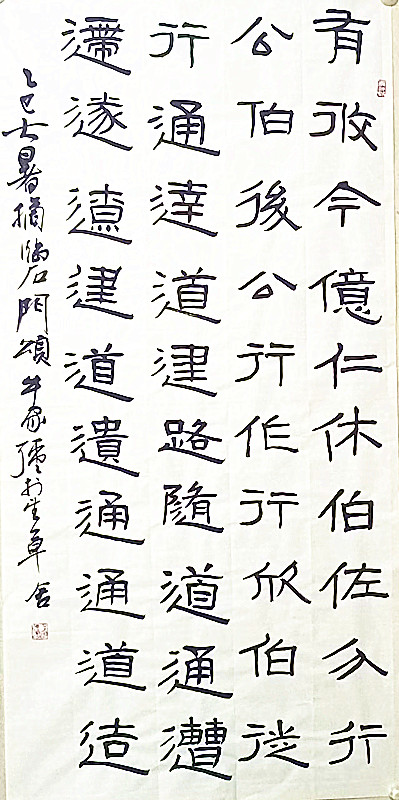 有攸今億仁休伯佐分行
公伯後公行作行伯
行通達道建路隨道通遭
遂建道遺通通道造
乙巳大暑摘臨石門頌牛家草舍